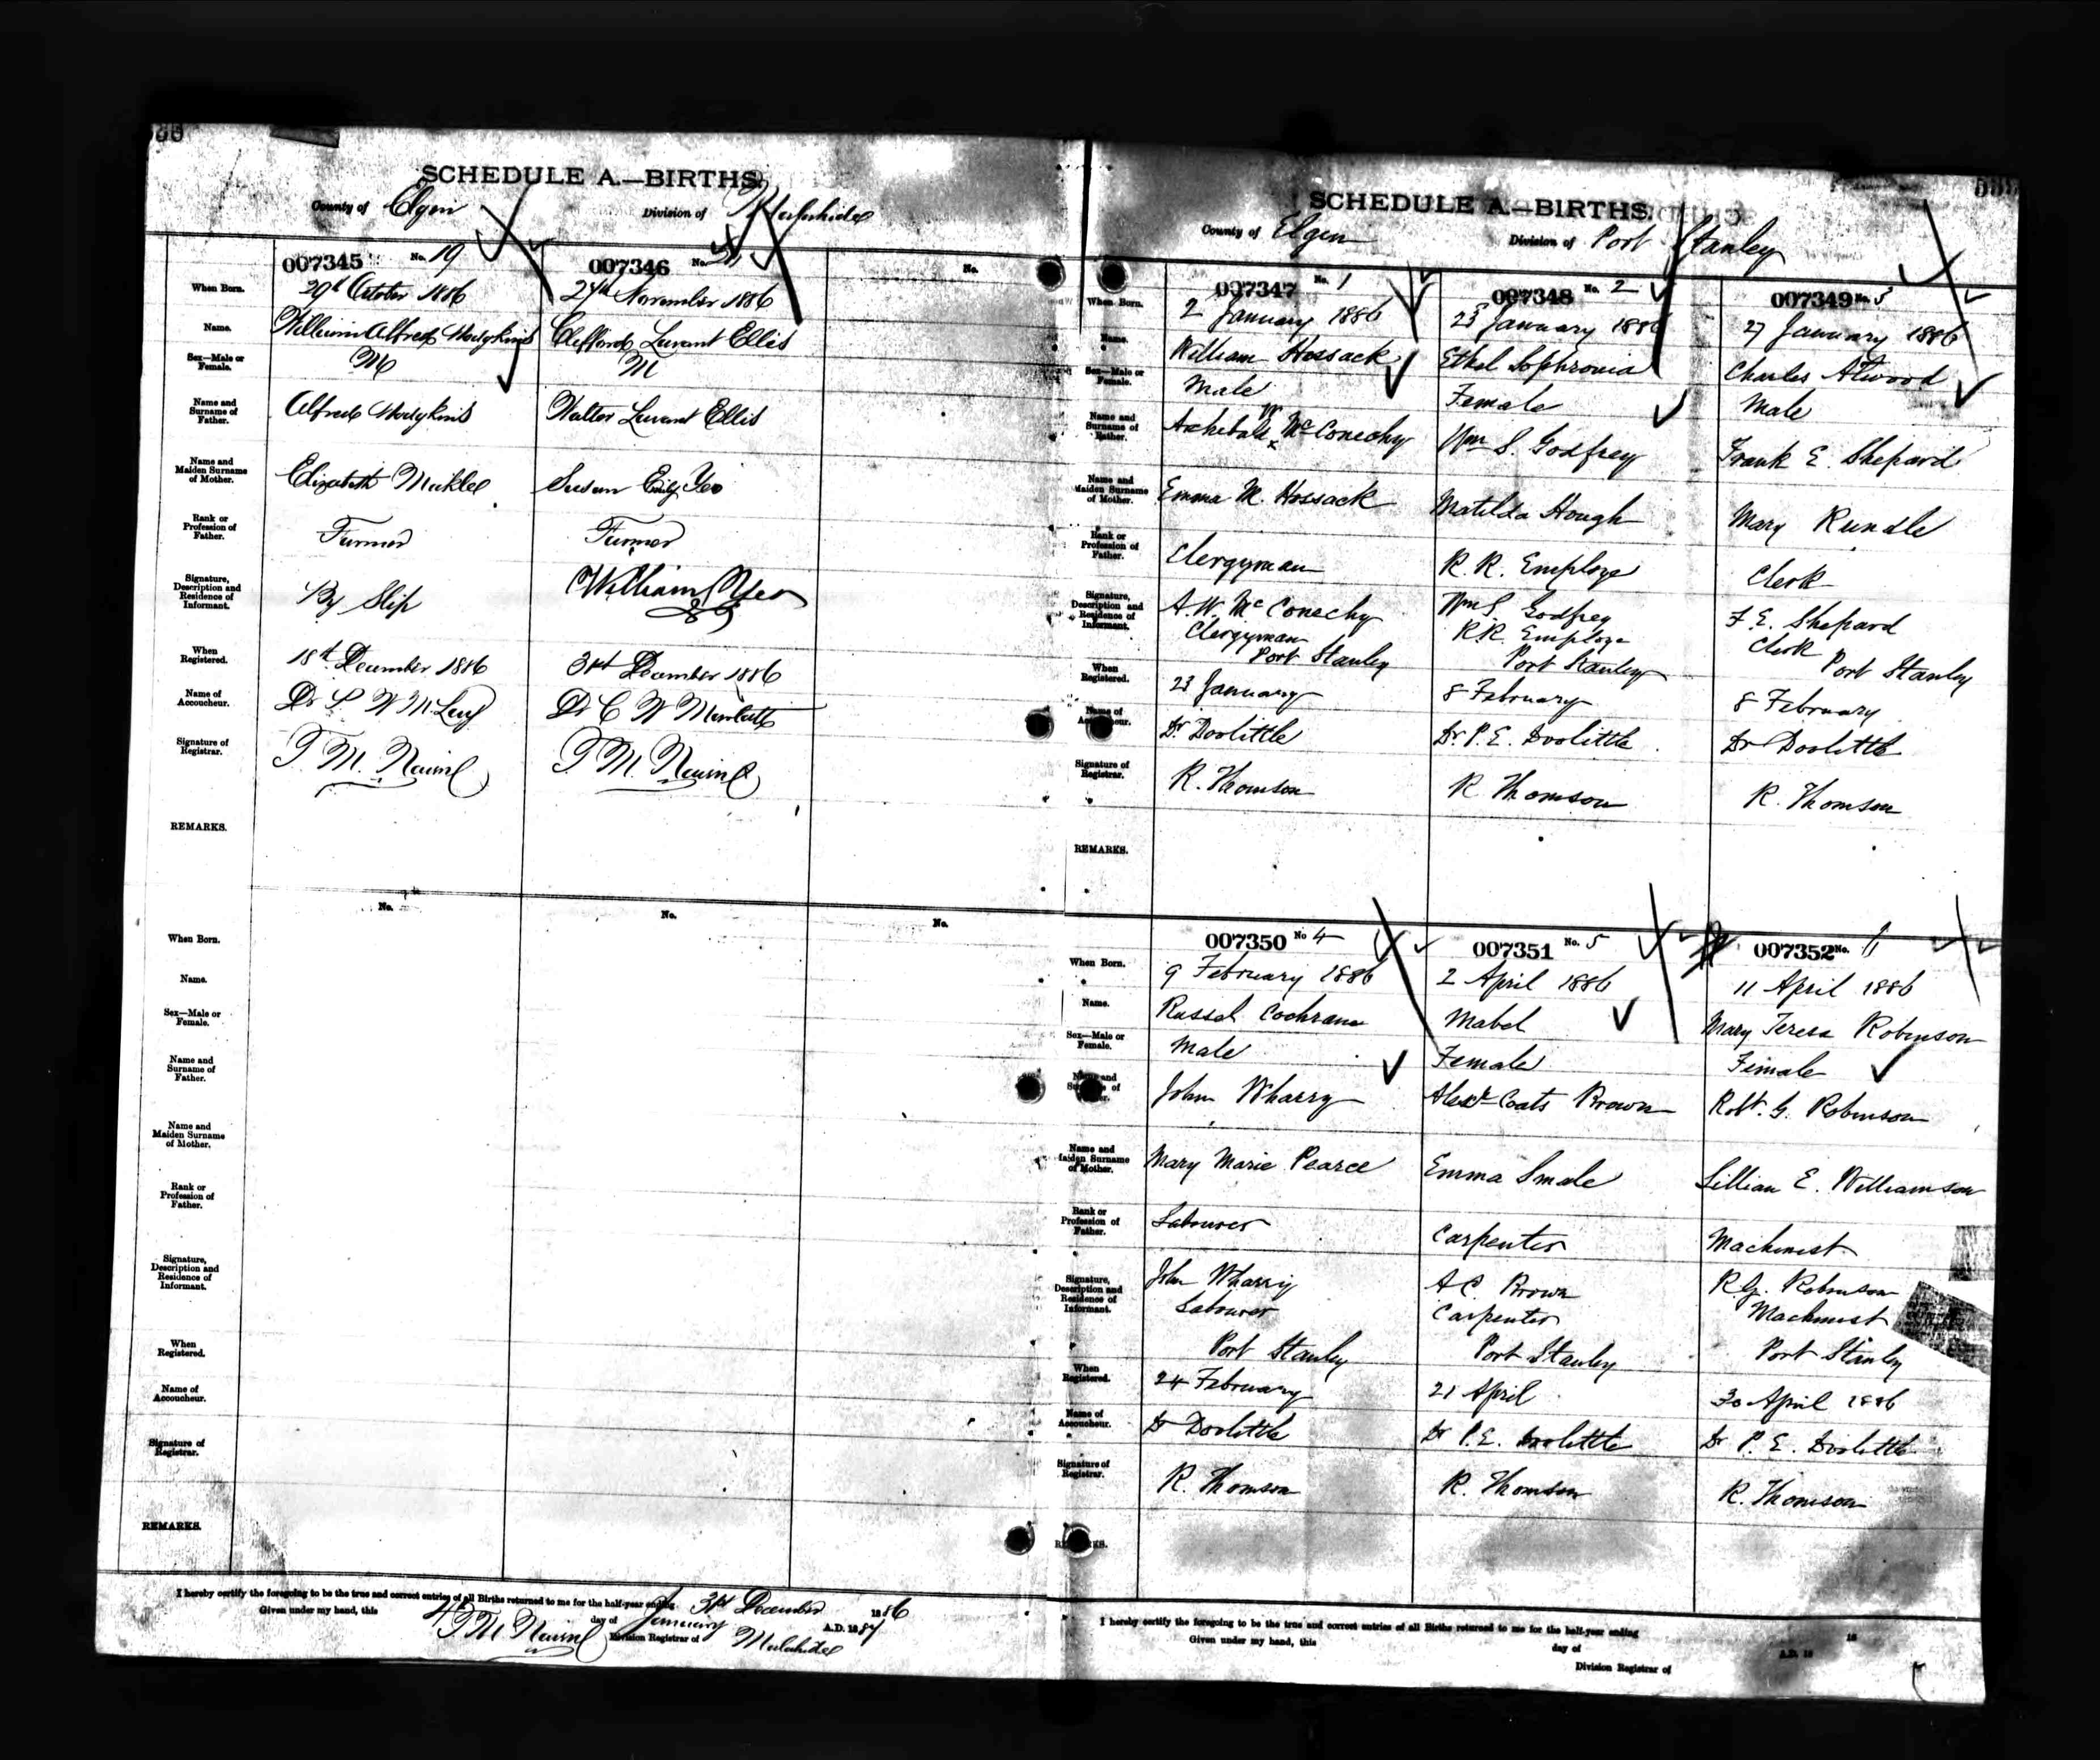 SCHEDULE A.—BIRTHS.
County of Elgin Division of Malahide
007345 No. 19
When Born. 29th October 1886
Name. William Alfred Hodgkins
Sex—Male or Female. M
Name and Surname of Father. Alfred Hodgkins
Name and Maiden Surname of Mother. Elizabeth
Rank or Profession of Father. Farmer
Signature, Description and Residence of Informant. By Slip
When Registered. 18th December 1886
Name of Accoucheur. Dr
Signature of Registrar. T. M. Nairn
REMARKS.
007346 No.
27th November 1886
Clifford Luvant Ellis
M
Walter Luvant Ellis
Susan Emily Yeo
Farmer
William Yeo
31st December 1886
Dr C W
T. M. Nairn
No.
No.
No.
No.
When Born.
Name.
Sex—Male or Female.
Name and Surname of Father.
Name and Maiden Surname of Mother.
Rank or Profession of Father.
Signature, Description and Residence of Informant.
When Registered.
Name of Accoucheur.
Signature of Registrar.
REMARKS.
I hereby certify the foregoing to be the true and correct entries of all Births returned to me for the half-year ending 31st December 1886
Given under my hand, this 4 day of January A.D. 1887
T M Nairn Division Registrar of Malahide
SCHEDULE A.—BIRTHS.
County of Elgin Division of Port Stanley
007347 No. 1
When Born. 2 January 1886
Name. William Hossack
Sex—Male or Female. Male
Name and Surname of Father. Archibald W McConechy
Name and Maiden Surname of Mother. Emma M. Hossack
Rank or Profession of Father. Clergyman
Signature, Description and Residence of Informant. A. W. McConechy
Clergyman
Port Stanley
When Registered. 23 January
Name of Accoucheur. Dr Doolittle
Signature of Registrar. R. Thomson
REMARKS.
007348 No. 2
23 January 1886
Ethel Sophronia
Female
Wm S. Godfrey
Matilda Hough
R. R. Employe
Wm S. Godfrey
R.R. Employe
Port Stanley
8 February
Dr. P. E. Doolittle
R. Thomson
007349 No. 3
27 January 1886
Charles Atwood
Male
Frank E. Shepard
Mary Rundle
Clerk
F. E. Shepard
Clerk
Port Stanley
8 February
Dr Doolittle
R. Thomson
007350 No 4
When Born. 9 February 1886
Name. Russel Cochrane
Sex—Male or Female. Male
Name and Surname of Father. John Wharry
Name and Maiden Surname of Mother. Mary Marie Pearce
Rank or Profession of Father. Labourer
Signature, Description and Residence of Informant. John Wharry
Labourer
Port Stanley
When Registered. 24 February
Name of Accoucheur. Dr Doolittle
Signature of Registrar. R. Thomson
007351 No. 5
2 April 1886
Mabel
Female
Alexr Coats Brown
Emma Smale
Carpenter
A C Brown
Carpenter
Port Stanley
21 April
Dr P. E. Doolittle
R. Thomson
007352 No. 6
11 April 1886
Mary Teresa Robinson
Female
Robt. G. Robinson
Lillian E. Williamson
Machinist
R G. Robinson
Machinist
Port Stanley
30 April 1886
Dr P. E. Doolittle
R. Thomson
I hereby certify the foregoing to be the true and correct entries of all Births returned to me for the half-year ending 18
Given under my hand, this day of A.D. 18
Division Registrar of